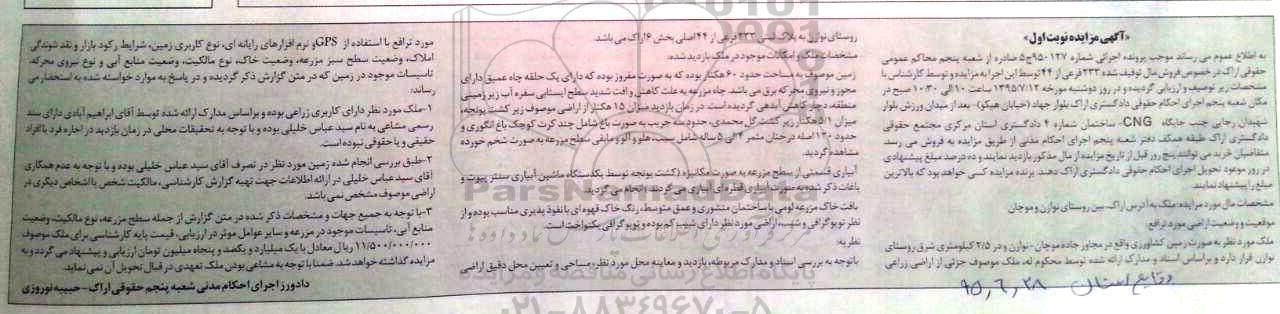 «آگهی مزایده نوبت اول»
به اطلاع عموم می رساند بموجب پرونده اجرائی شماره ۹۵۰۱۲۷ج۵ صادره از شعبه پنجم محاکم عمومی
حقوقی اراک در خصوص فروش مال توقیف شده ۲۳۳ فرعی از ۴۴ توسط این اجرا به مزایده و توسط کارشناس با
مشخصات زیر توصیف و ارزیابی گردیده و در روز دوشنبه مورخه ۱۳۹۵/۷/۱۲ ساعت ۱۰ الی ۱۰:۳۰ صبح در
مکان شعبه پنجم اجرای احکام حقوقی دادگستری اراک بلوار جهاد (خیابان هپکو)- بعد از میدان ورزش بلوار
شهیدان رجایی جنب جایگاه CNG- ساختمان شماره ۴ دادگستری استان مرکزی مجتمع حقوقی
دادگستری اراک طبقه همکف دفتر شعبه پنجم اجرای احکام مدنی از طریق مزایده به فروش می رسد.
متقاضیان خرید می توانند پنج روز قبل از تاریخ مزایده از مال مذکور بازدید نمایند و ده درصد مبلغ پیشنهادی
در روز موعود تحویل اجرای احکام حقوقی دادگستری اراک دهند. برنده مزایده کسی خواهد بود که بالاترین
مبلغ را پیشنهاد نمایند.
مشخصات مال مورد مزایده: ملک به آدرس اراک، بین روستای نوازن و موچان
موقعیت و وضعیت اراضی مورد ترافع:
ملک مورد نظر به صورت زمین کشاورزی واقع در مجاور جاده موچان - نوازن و در ۲/۵ کیلومتری شرق روستای
نوازن قرار دارد و براساس اسناد و مدارک ارائه شده توسط محکوم له، ملک موصوف جزئی از اراضی زراعی
روستای نوازن به پلاک ثبتی ۲۳۳ فرعی از ۴۴ اصلی بخش ۶ اراک می باشد.
مشخصات ملک و امکانات موجود در ملک بازدید شده:
زمین موصوف به مساحت حدود ۶۰ هکتار بوده که به صورت مفروز بوده که دارای یک حلقه چاه عمیق دارای
مجوز و نیروی محرکه برق می باشد. چاه مزرعه به علت کاهش و افت شدید سطح ایستابی سفره آب زیر زمینی
منطقه، دچار کاهش آبدهی گردیده است. در زمان بازدید میزان ۱۵ هکتار از اراضی موصوف زیر کشت یونجه،
میزان ۵/۱ هکتار زیر کشت گل محمدی، حدود سه جریب به صورت باغ شامل چند کرت کوچک باغ انگوری و
حدود ۱۳۰ اصله درختان مثمر ۴ الی ۵ ساله شامل سیب، هلو و آلو و مابقی سطح مزرعه به صورت شخم خورده
مشاهده گردید.
آبیاری قسمتی از سطح مزرعه به صورت مکانیزه (کشت یونجه توسط یکدستگاه ماشین آبیاری سنتر پیوت و
باغات ذکر شده به صورت آبیاری قطره ای آبیاری می گردند) انجام می گردید.
بافت خاک مزرعه لومی با ساختمان منشوری و عمق متوسط، رنگ خاک قهوه ای با نفوذ پذیری مناسب بوده و از
نظر توپوگرافی و شیب، اراضی مورد نظر دارای شیب کم بوده و توپوگرافی یکنواخت است.
نظریه:
با توجه به بررسی اسناد و مدارک مربوطه، بازدید و معاینه محل مورد نظر و مساحی و تعیین محل دقیق اراضی
مورد ترافع با استفاده از GPS و نرم افزارهای رایانه ای، نوع کاربری زمین، شرایط رکود بازار و نقد شوندگی
املاک، وضعیت سطح سبز مزرعه، وضعیت خاک، نوع مالکیت، وضعیت منابع آبی و نوع نیروی محرکه،
تاسیسات موجود در زمین که در متن گزارش ذکر گردیده و در پاسخ به موارد خواسته شده به استحضار می
رساند:
۱-ملک مورد نظر دارای کاربری زراعی بوده و براساس مدارک ارائه شده توسط آقای ابراهیم آبادی دارای سند
رسمی مشاعی به نام سید عباس خلیلی بوده و با توجه به تحقیقات محلی در زمان بازدید در اجاره فرد یا افراد
حقیقی و یا حقوقی نبوده است.
۲-طبق بررسی انجام شده زمین مورد نظر در تصرف آقای سید عباس خلیلی بوده و با توجه به عدم همکاری
آقای سید عباس خلیلی در ارائه اطلاعات جهت تهیه گزارش کارشناسی، مالکیت شخص یا اشخاص دیگری در
اراضی موصوف مشخص نمی باشد.
۳-با توجه به جمیع جهات و مشخصات ذکر شده در متن گزارش از جمله سطح مزرعه، نوع مالکیت، وضعیت
منابع آبی، تاسیسات موجود در مزرعه و سایر عوامل موثر در ارزیابی، قیمت پایه کارشناسی برای ملک موصوف
۱۱/۵۰۰/۰۰۰/۰۰۰ ریال معادل با یک میلیارد و یکصد و پنجاه میلیون تومان ارزیابی و پیشنهاد می گردد و به
مزایده گذاشته خواهد شد. ضمنا با توجه به مشاعی بودن ملک تعهدی در قبال تحویل آن نمی نماید.
دادورز اجرای احکام مدنی شعبه پنجم حقوقی اراک - حبیبه نوروزی
وقایع استان ۹۵,۶,۲۸
ParsNamadData
پایگاه اطلاع رسانی مناقصه و مزایده
۰۲۱-۸۸۳۴۹۶۷۰-۵